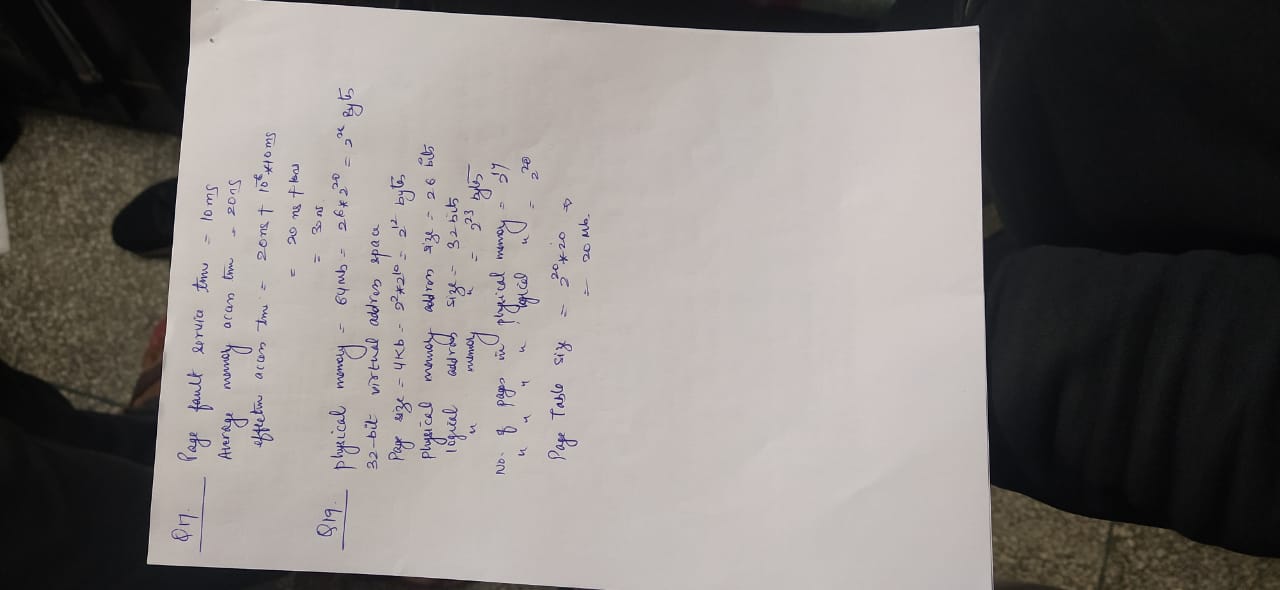 Q17. Page fault service time = 10ms
Average memory access time = 20ns
effective access time = 20ns + 10⁻⁶*10ms
= 20 ns + 10ns
= 30 ns
Q19. physical memory = 64Mb = 2⁶*2²⁰ = 2²⁶ Bytes
32-bit virtual address space
Page size = 4Kb = 2²*2¹⁰ = 2¹² bytes
physical memory address size = 26 bits
logical address size = 32bits
" memory " = 2²³ bytes
No. of pages in physical memory = 2¹⁷
" " " " logical " = 2²⁰
Page Table size = 2²⁰*20
= 20 Mb.